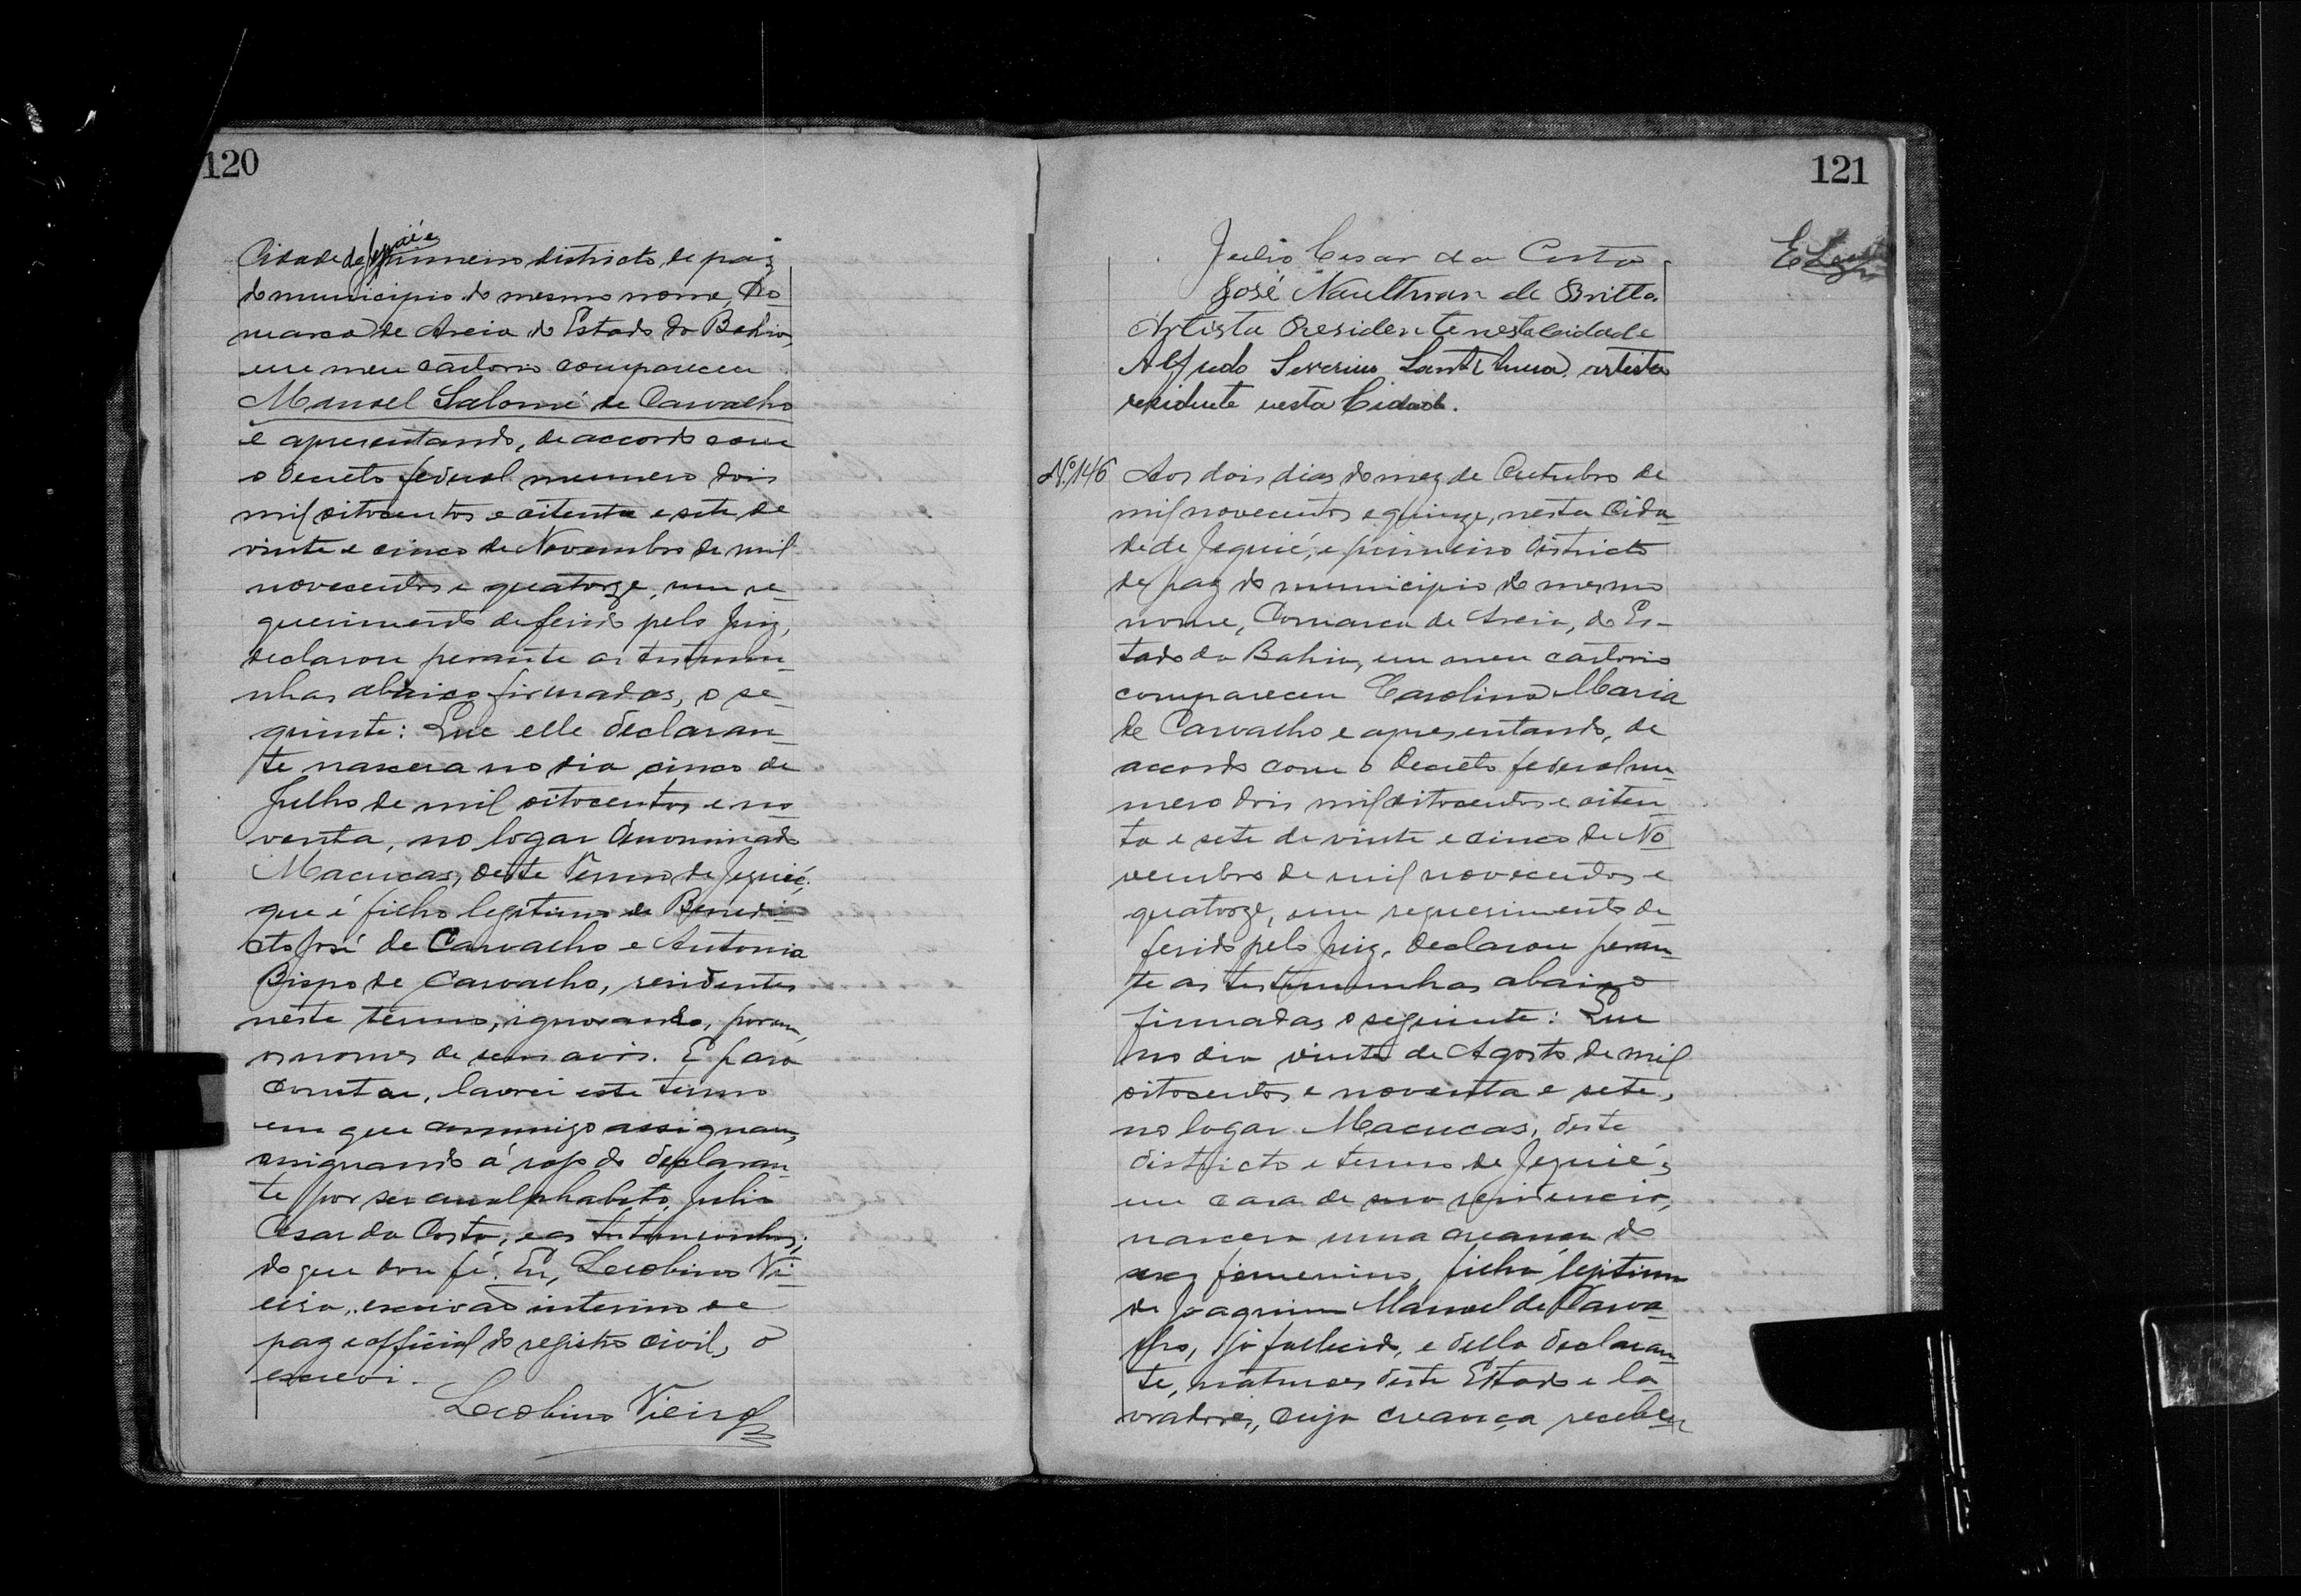 120
Cidade de Jequié e primeiro districto de paz
do municipio do mesmo nome, Co-
marca de Areia do Estado da Bahia,
em meu cartorio compareceu
Manoel Salomé de Carvalho
e apresentando, de accordo com
o decreto federal numero dois
mil oitocentos e oitenta e sete de
vinte e cinco de Novembro de mil
novecentos e quatorze, um re-
querimento deferido pelo Juiz,
declarou perante as testemu-
nhas abaixo firmadas, o se-
guinte: Que elle declaran-
te nascera no dia cinco de
Julho de mil oitocentos e no-
venta, no logar denominado
Macucas, deste Termo de Jequié;
que é filho legitimo de Benedi-
cto José de Carvalho e Antonia
Bispo de Carvalho, residentes
neste termo, ignorando, porem,
os nomes de seus avós. E para
constar, lavrei este termo
em que commigo assignam,
assignando á rogo do declaran-
te por ser analphabeto, Julio
Cesar da Costa, e as testemunhas;
do que dou fé. Eu, Leobino Vi-
eira, escrivão interino de
paz e official do registro civil, o
escrevi.
Leobino Vieira
121
Julio Cesar da Costa
José Naultman de Britto
Artista Residente nesta Cidade
Alfredo Severino Sant'Anna artista
residente nesta Cidade.
Nº 146 Aos dois dias do mez de Outubro de
mil novecentos e quinze, nesta Cida-
de de Jequié, e primeiro districto
de paz do municipio do mesmo
nome, Comarca de Areia, do Es-
tado da Bahia, em meu cartorio
compareceu Carolina Maria
de Carvalho e apresentando, de
accordo com o decreto federal nu-
mero dois mil oitocentos e oiten-
ta e sete de vinte e cinco de No-
vembro de mil novecentos e
quatorze, um requerimento de-
ferido pelo Juiz, declarou peran-
te as testemunhas abaixo
firmadas o seguinte: Que
no dia vinte de Agosto de mil
oitocentos e noventa e sete,
no logar Macucas, deste
districto e termo de Jequié,
em casa de sua residencia,
nascera uma creança do
sexo femenino, filha legitima
de Joaquim Manoel de Carva-
lho, já fallecido, e della declaran-
te, naturaes deste Estado e la-
vradores, cuja creança recebeu